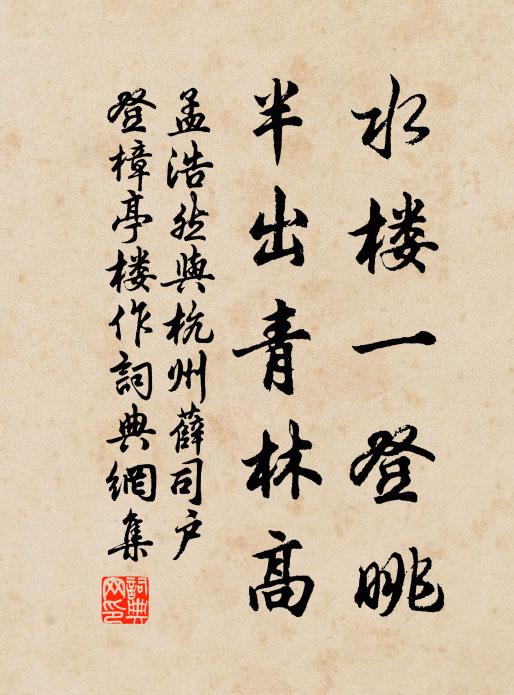 水楼一登眺
半出青林高
孟浩然與杭州薛司户
登樟亭楼作詞典網集
詞典
网印